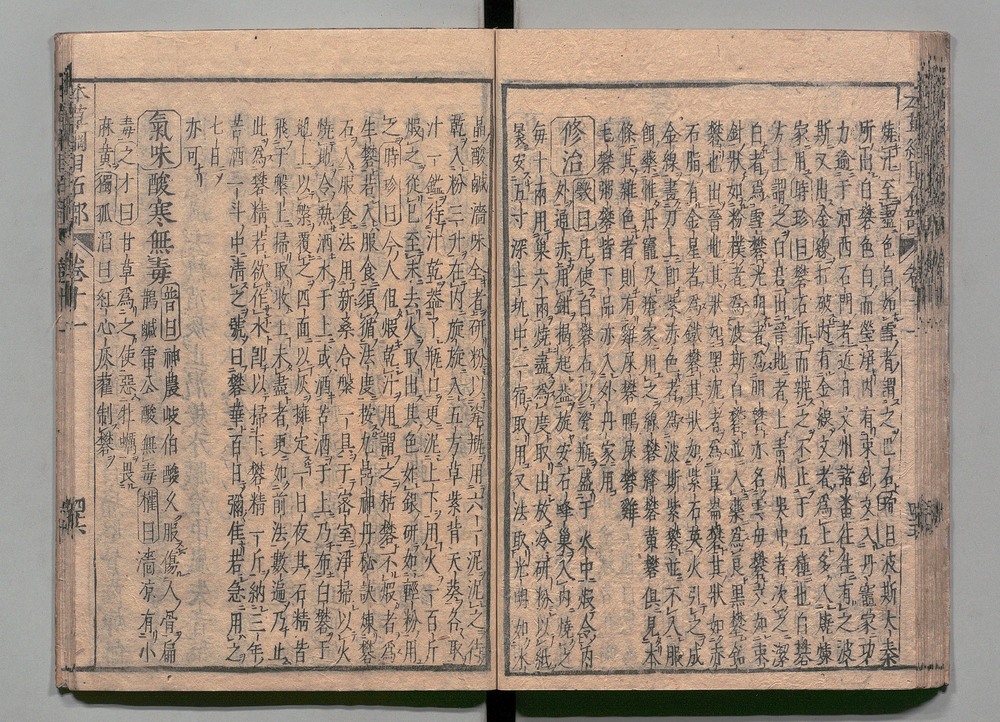 煉汁至盡色白如雪者謂之巴石珣曰波斯大秦
所出白礬色白而瑩淨內有束針文入丹竈家功
力逾于河西石門者近日文州諸番往往有之波
斯又出金線礬打破內有金線文者爲上多入燒煉
家用時珍曰礬石折而辨之不止于五種也白礬
方士謂之白君出晉地者上青州吳中者次之潔
白者爲雪礬光明者爲明礬亦名雲母礬文如束
針狀如粉撲者爲波斯白礬並入藥爲良黑礬鉛
礬也出晉地其狀如黑泥者爲崑崙礬其狀如赤
石脂有金星者爲鐵礬其狀如紫石英火引之成
金線畫刀上即紫赤色者爲波斯紫礬並不入服
餌藥惟丹竈及瘡家用之綠礬絳礬黃礬俱見本
條其雜色者則有雞屎礬鴨屎礬雞
毛礬粥礬皆下品亦入外丹家用
修治斅曰凡使白礬石以瓷瓶盛于火中煅令內
外通赤用鉗揭起蓋旋安石蜂巢入內燒之
每十兩用巢六兩燒盡爲度取出放冷研粉以紙
裹安五寸深土坑中一宿取用又法取光明如水
晶酸鹹濇味全者研粉以瓷瓶用六一泥泥之待
乾入粉三升在內旋旋入五方草紫背天葵各取
汁一鎰待汁乾蓋了瓶口更泥上下用火一百斤
煅之從巳至未去火取出其色如銀研如輕粉用
之時珍曰今人但煅乾汁用謂之枯礬不煅者爲
生礬若入服食須循法度按九鼎神丹秘訣煉礬
石入服食法用新桑合槃一具于密室淨掃以火
燒地令熱洒水于上或洒苦酒于上乃布白礬于
地上以槃覆之四面以灰擁定一日夜其石精皆
飛于槃上掃取收之未盡者更如前法數遍乃止
此爲礬精若欲作水即以掃下礬精一斤納三年
苦酒一斗中清之號曰礬華百日彌佳若急用之
七日
亦可
氣味酸寒無毒普曰神農岐伯酸久服傷人骨扁
鵲鹹雷公酸無毒權曰濇凉有小
毒之才曰甘草爲之使惡牡蠣畏
麻黃獨孤滔曰紅心灰藋制礬
本草綱目石部 卷十一